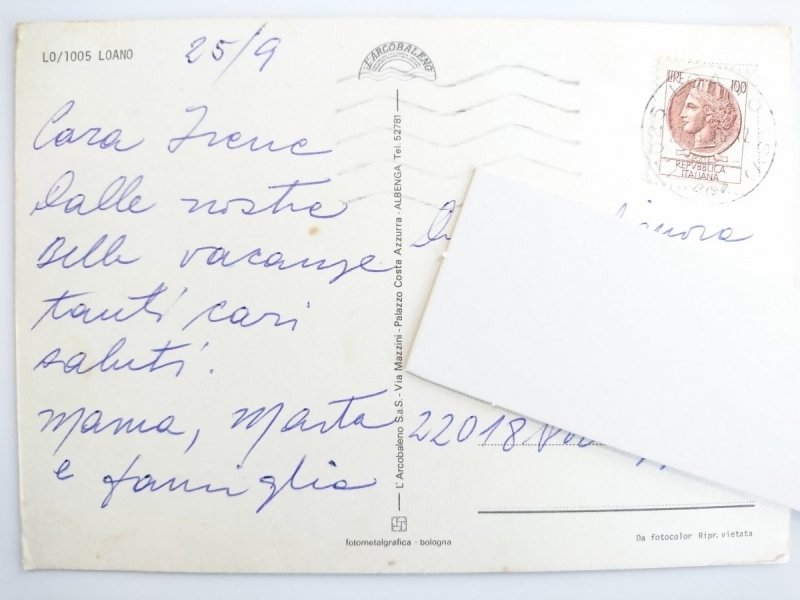 LO/1005 LOANO
25/9
L'ARCOBALENO
LIRE 100
REPVBBLICA
ITALIANA
Cara Irene
Dalle nostre
Belle vacanze
tanti cari
saluti.
Mama, Marta
e famiglia
L'Arcobaleno S.a.S. - Via Mazzini - Palazzo Costa Azzurra - ALBENGA Tel. 52781
Signora
22018
fotometalgrafica - bologna
Da fotocolor Ripr. vietata